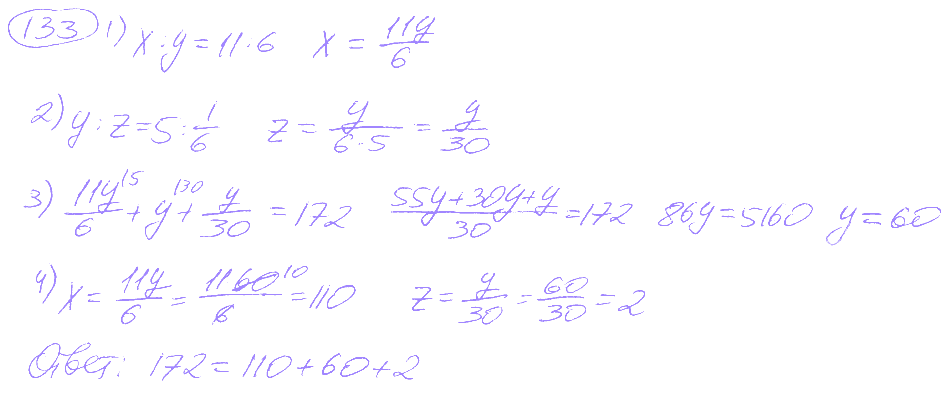 133 1) x:y=11·6 x = 11y/6
2) y:z=5:1/6 z = y/(6·5) = y/30
3) 11y/6 \5 + y \30 + y/30 = 172 (55y+30y+y)/30 = 172 86y=5160 y=60
4) x = 11y/6 = 11 60/6 10 = 110 z = y/30 = 60/30 = 2
Ответ: 172 = 110+60+2